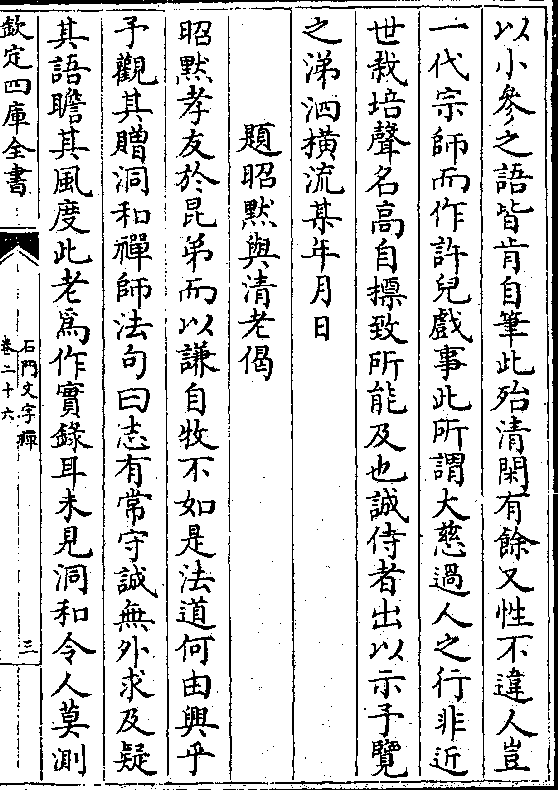 以小參之語皆肯自筆此殆清閑有餘又性不違人豈
一代宗師而作許兒戲事此所謂大慈過人之行非近
世栽培聲名高自摽致所能及也誠侍者出以示予覽
之涕泗橫流某年月日
題昭默與清老偈
昭默孝友於昆弟而以謙自牧不如是法道何由興乎
予觀其贈洞和禪師法句曰志有常守誠無外求及疑
其語瞻其風度此老爲作實錄耳未見洞和令人莫測
欽定四庫全書
石門文字禪
卷二十六
三